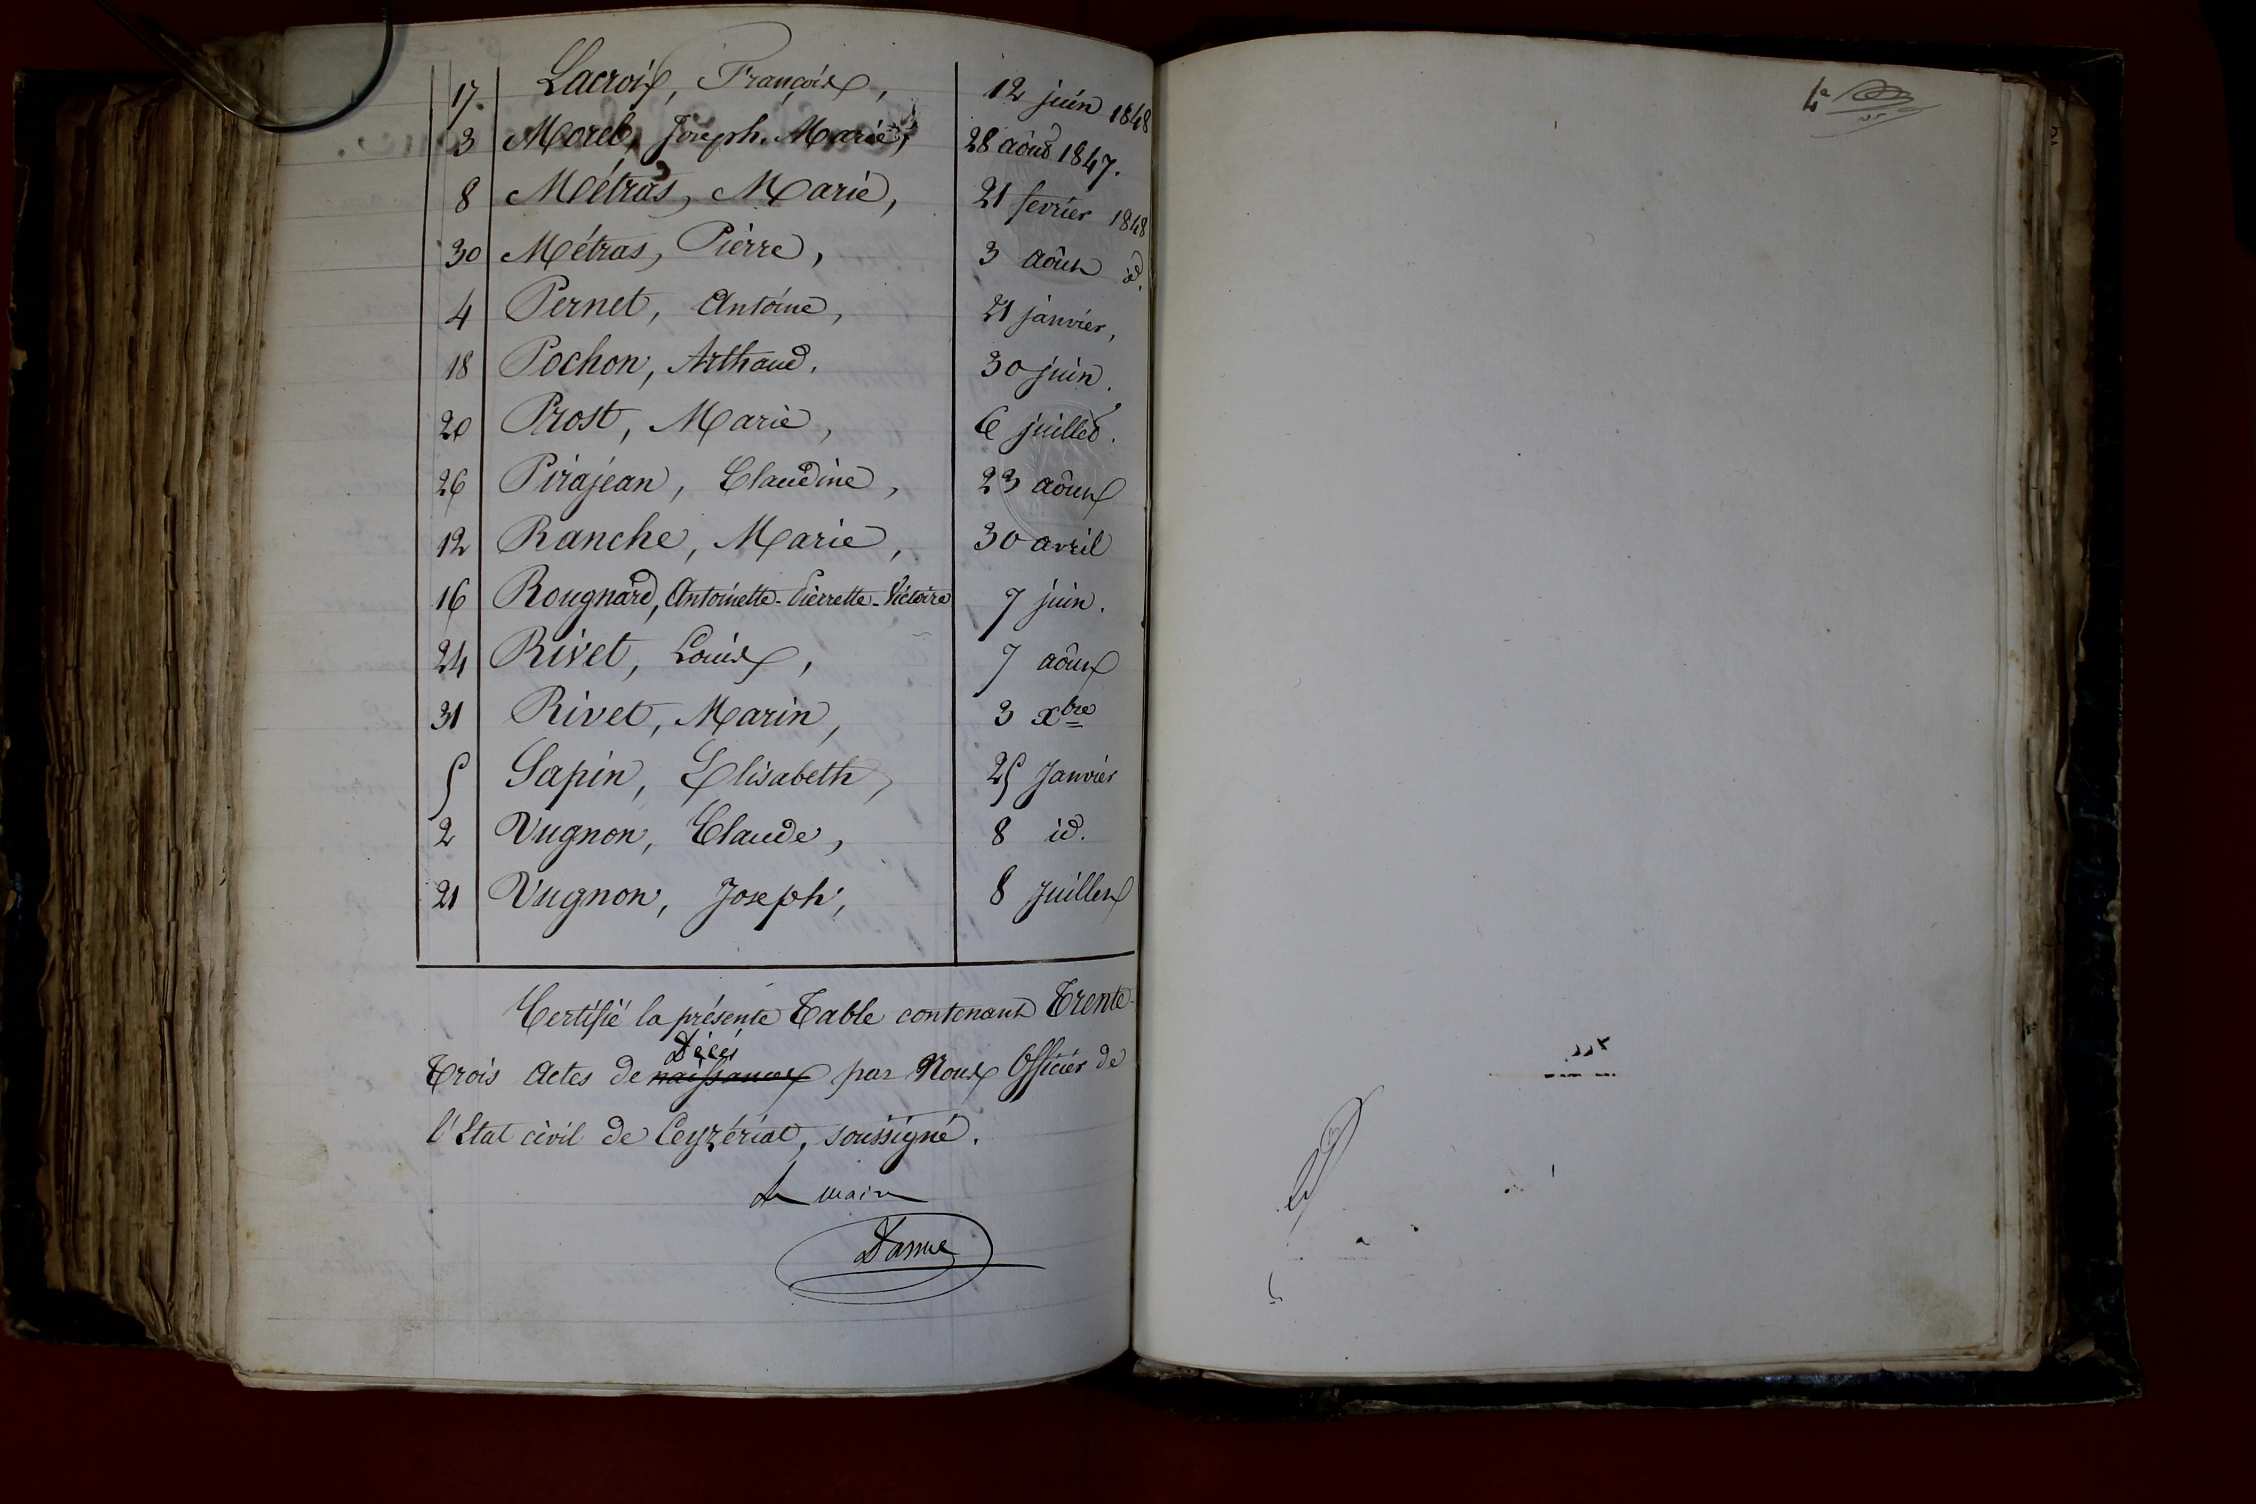 17. Lacroix, François, 12 juin 1848
3 Morel, Joseph-Marie, 28 août 1847.
8 Métras, Marie, 21 fevrier 1848
30 Métras, Pierre, 3 août id.
4 Pernet, Antoine, 21 janvier,
18 Pochon, Arthaud. 30 juin.
20 Prost, Marie, 6 juillet.
26 Pirajean, Claudine, 23 août
12 Ranche, Marie, 30 avril
16 Rougnard, Antoinette-Pierrette-Victoire 7 juin.
24 Rivet, Louis, 7 août
31 Rivet, Marin, 3 Xbre
5 Sapin, Elisabeth, 25 Janvier
2 Vugnon, Claude, 8 id.
21 Vugnon, Joseph, 8 Juillet
Certifié la présente Table contenant Trente-
Décès
Trois Actes de naissances par Nous Officier de
l'Etat civil de Ceyzériat, soussigné.
Le maire